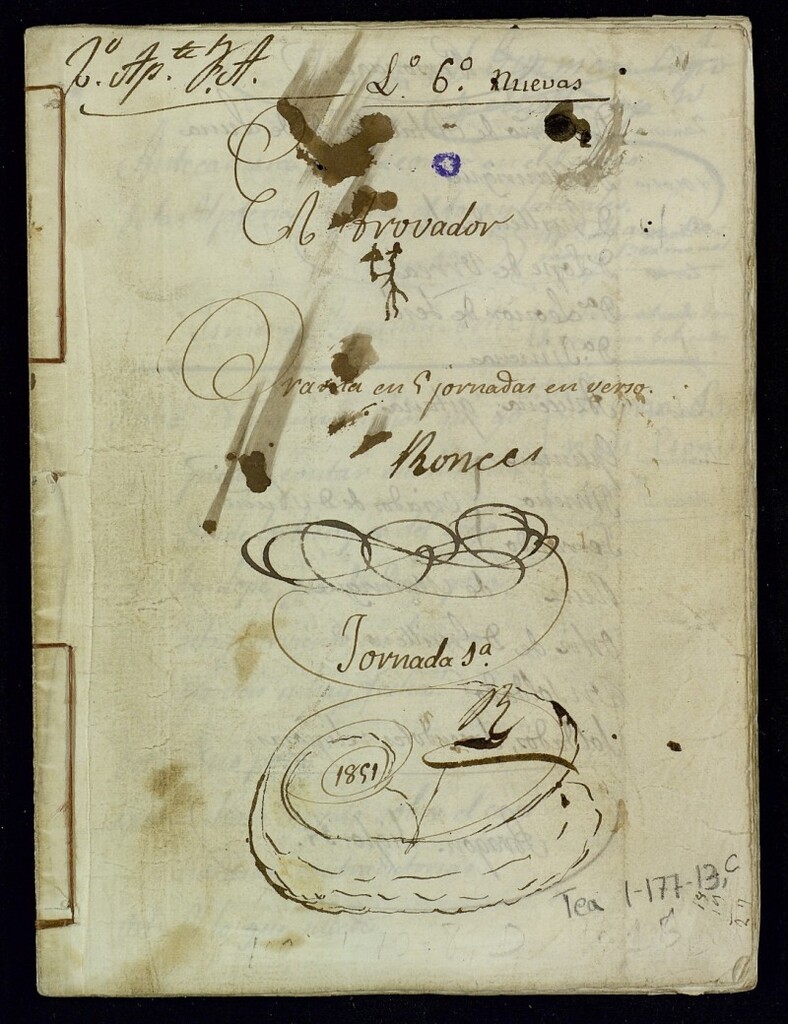 Lº 6º Nuevas
El Trovador
Drama en 5 jornadas en verso.
Jornada 1ª
R
1851
Tea 1-177-13, C